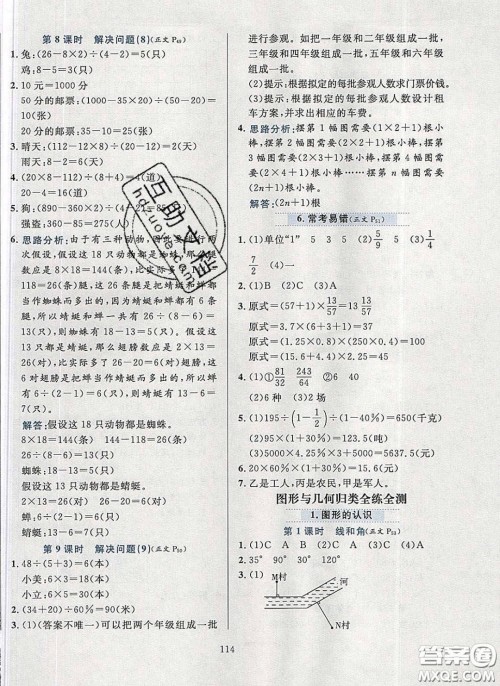 第8课时 解决问题(8)(正文P49)
1. 兔:(26-8×2)÷(4-2)=5(只)
鸡:8-5=3(只)
2. 10元=1000分
50分的邮票:(1000-35×20)÷(50-20)=10(张)
20分的邮票:35-10=25(张)
3. 晴天:(112-12×8)÷(20-12)=2(天)
雨天:8-2=6(天)
4. (20×8-112)÷(8+4)=4(道)
5. 狗:(890-360×2)÷(4-2)=85(只)
强盗:360-85=275(名)
6. 思路分析:由于有三种动物,因此要进行两次假设,仍假设这18只动物都是蜘蛛,那么这时候的腿数总数应是
8×18=144(条),比实际多了144-118=26(条),这是把蜻蜓和蝉都当作蜘蛛的缘故,而把一只蜻蜓和蝉都当作蜘蛛要多出8-6=2(条)腿,所以蜻蜓和蝉共有26÷2=13(只)。假设这13只动物都是蜻蜓,那么翅膀数应是2×13=26(对),比实际多了26-20=6(对)翅膀,这6对翅膀是把蝉当作蜻蜓的缘故,所以蝉有6÷1=6(只)。
解答:假设这18只动物都是蜘蛛。
8×18=144(条) 144-118=26(条)
8-6=2(条) 26÷2=13(只)
蜘蛛:18-13=5(只)
假设这13只动物都是蜻蜓。
2×13=26(对) 26-20=6(对)
2-1=1(对) 蝉:6÷1=6(只)
蜻蜓:13-6=7(只)
第9课时 解决问题(9)(正文P50)
1. 48÷(5+3)=6(本)
小美:6×5=30(本)
小立:6×3=18(本)
2. (34+20)÷60%=90(米)
3. (1)(答案不唯一)可以把两个年级组成一批
进行参观。如把一年级和二年级组成一批,三年级和四年级组成一批,五年级和六年级组成一批。
(2)根据拟定的每批参观人数求门票价钱。
(3)根据拟定的每批参观人数设计租车方案,并求出相应的车费。
4. 思路分析:摆第1幅图需要(2×1+1)根小棒,摆第2幅图需要(2×2+1)根小棒……摆第n幅图需要(2n+1)根小棒。
解答:(2n+1)根
6. 常考易错(正文P51)
1. (1)单位“1” 5 3 5 (2)5/9 5 (3)7/2 (4)一
2. (1)B (2)C (3)A
3. 原式=(13+57)×13/57=13 13/57
原式=(1.25×8)×(0.25×4)=10
4. (1)①81/32 ②243/64 (2)36 0
5. (1)195÷(1-1/2)÷(1-40%)=650(千克)
(2)5000+5000×1.50%×2=5150(元)
5000+5000×4.25%×3=5637.5(元)
6. 20%×20%×1÷20%÷20%=1
7. 乙是工人,丙是农民,甲是军人。
图形与几何归类全练全测
1. 图形的认识
第1课时 线和角(正文P52)
1. (1)C (2)A (3)B (4)A
2. 35° 90° 30° 120°
3. (1)
M村
河
N村
互助文档
114